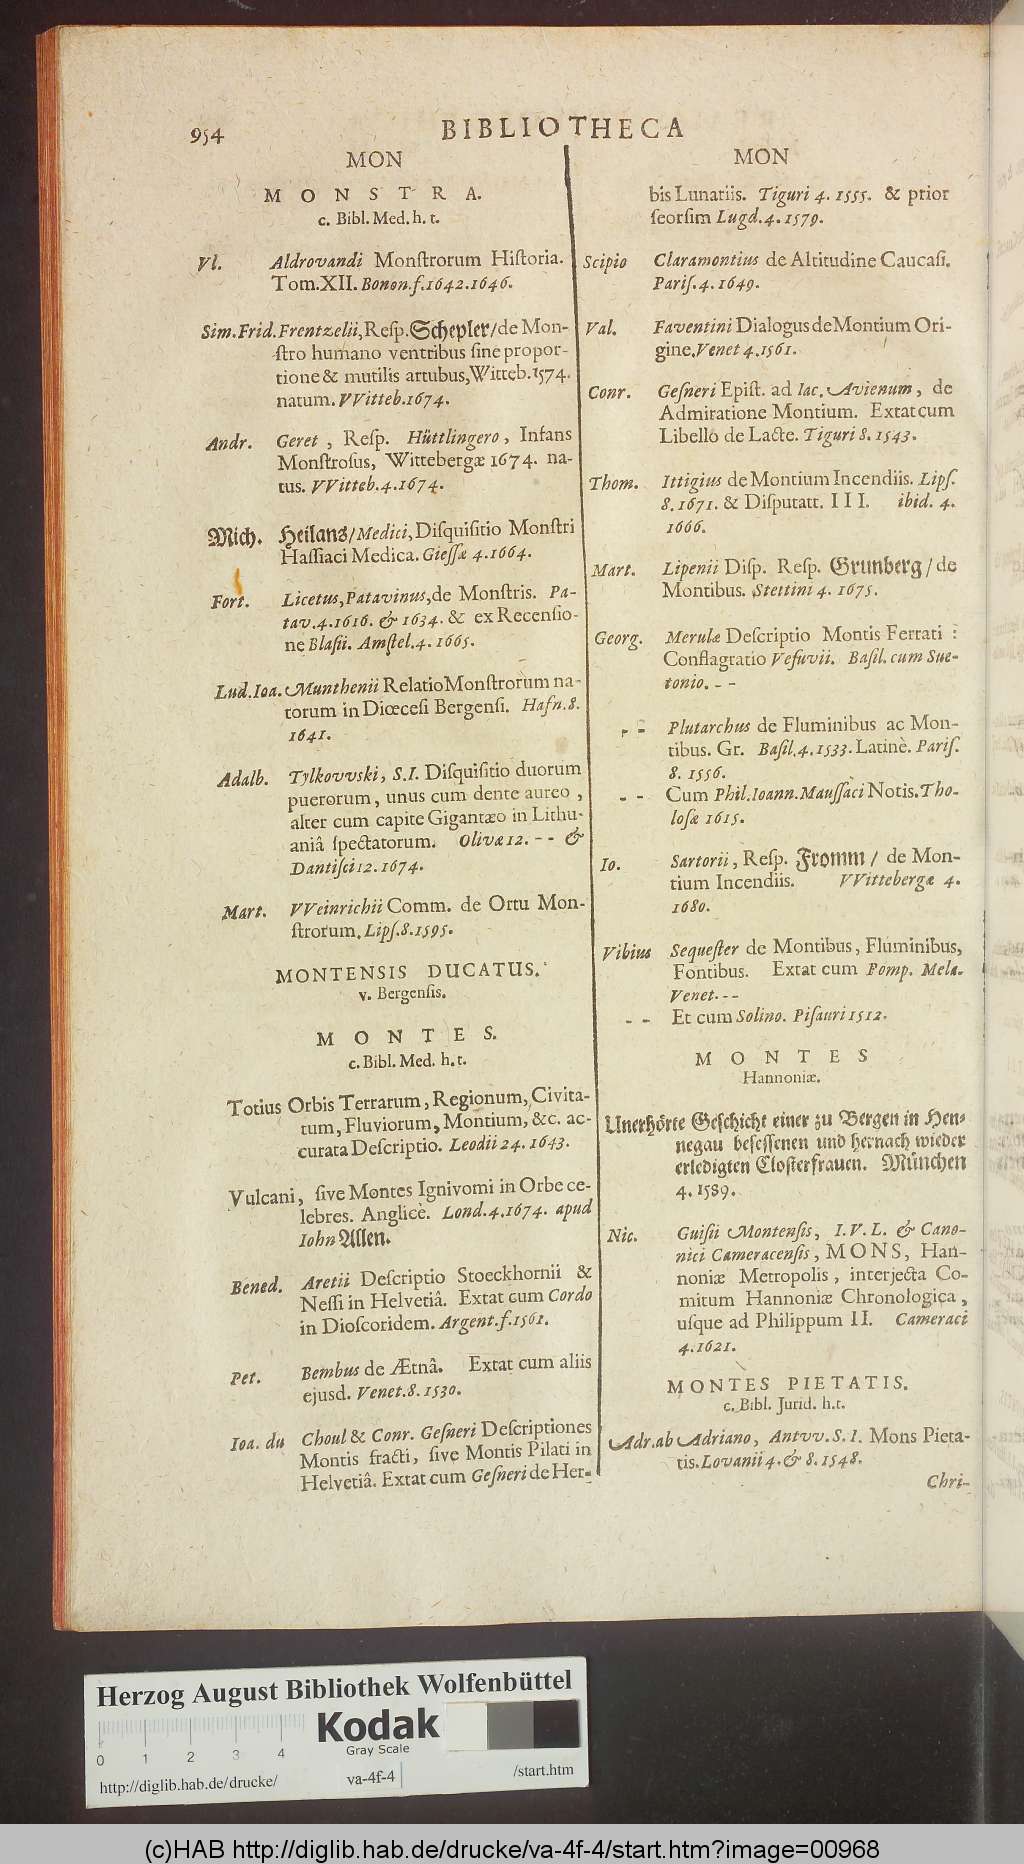 954
BIBLIOTHECA
MON
MONSTRA.
c. Bibl. Med. h. t.
Vl. Aldrovandi Monſtrorum Hiſtoria.
Tom. XII. Bonon. f. 1642. 1646.
Sim. Frid. Frentzelii, Reſp. Schepler/ de Mon-
ſtro humano ventribus ſine propor-
tione & mutilis artubus, Witteb. 1574.
natum. VVitteb. 1674.
Andr. Geret, Reſp. Hüttlingero, Infans
Monſtroſus, Wittebergæ 1674. na-
tus. VVitteb. 4. 1674.
Mich. Heilans/ Medici, Diſquiſitio Monſtri
Haſſiaci Medica. Gieſſæ 4. 1664.
Fort. Licetus, Patavinus, de Monſtris. Pa-
tav. 4. 1616. & 1634. & ex Recenſio-
ne Blaſii. Amſtel. 4. 1665.
Lud. Ioa. Munthenii Relatio Monſtrorum na-
torum in Diœceſi Bergenſi. Hafn. 8.
1641.
Adalb. Tylkovvski, S. I. Diſquiſitio duorum
puerorum, unus cum dente aureo,
alter cum capite Gigantæo in Lithu-
aniâ ſpectatorum. Olivæ 12. - - &
Dantiſci 12. 1674.
Mart. VVeinrichii Comm. de Ortu Mon-
ſtrorum. Lipſ. 8. 1595.
MONTENSIS DUCATUS.
v. Bergenſis.
MONTES.
c. Bibl. Med. h. t.
Totius Orbis Terrarum, Regionum, Civita-
tum, Fluviorum, Montium, &c. ac-
curata Deſcriptio. Leodii 24. 1643.
Vulcani, ſive Montes Ignivomi in Orbe ce-
lebres. Anglicè. Lond. 4. 1674. apud
Iohn Allen.
Bened. Aretii Deſcriptio Stoeckhornii &
Neſſi in Helvetiâ. Extat cum Cordo
in Dioſcoridem. Argent. f. 1561.
Pet. Bembus de Ætnâ. Extat cum aliis
ejusd. Venet. 8. 1530.
Ioa. du Choul & Conr. Geſneri Deſcriptiones
Montis fracti, ſive Montis Pilati in
Helvetiâ. Extat cum Geſneri de Her-
MON
bis Lunariis. Tiguri 4. 1555. & prior
ſeorſim Lugd. 4. 1579.
Scipio Claramontius de Altitudine Caucaſi.
Pariſ. 4. 1649.
Val. Faventini Dialogus de Montium Ori-
gine. Venet 4. 1561.
Conr. Geſneri Epiſt. ad Iac. Avienum, de
Admiratione Montium. Extat cum
Libello de Lacte. Tiguri 8. 1543.
Thom. Ittigius de Montium Incendiis. Lipſ.
8. 1671. & Diſputatt. III. ibid. 4.
1666.
Mart. Lipenii Diſp. Reſp. Grunberg/ de
Montibus. Stettini 4. 1675.
Georg. Merulæ Deſcriptio Montis Ferrati:
Conflagratio Veſuvii. Baſil. cum Sue-
tonio. - -
- - Plutarchus de Fluminibus ac Mon-
tibus. Gr. Baſil. 4. 1533. Latinè. Pariſ.
8. 1556.
- - Cum Phil. Ioann. Mauſſaci Notis. Tho-
loſæ 1615.
Io. Sartorii, Reſp. Fromm/ de Mon-
tium Incendiis. VVittebergæ 4.
1680.
Vibius Sequeſter de Montibus, Fluminibus,
Fontibus. Extat cum Pomp. Mela.
Venet. - -
- - Et cum Solino. Piſauri 1512.
MONTES
Hannoniæ.
Unerhörte Geſchicht einer zu Bergen in Hen-
negau beſeſſenen und hernach wieder
erledigten Cloſterfrauen. München
4. 1589.
Nic. Guiſii Montenſis, I. V. L. & Cano-
nici Cameracenſis, MONS, Han-
noniæ Metropolis, interjecta Co-
mitum Hannoniæ Chronologica,
uſque ad Philippum II. Cameraci
4. 1621.
MONTES PIETATIS.
c. Bibl. Jurid. h. t.
Adr. ab Adriano, Antvv. S. I. Mons Pieta-
tis. Lovanii 4. & 8. 1548.
Chri-
Herzog August Bibliothek Wolfenbüttel
Kodak
Gray Scale
0 1 2 3 4
http://diglib.hab.de/drucke/ va-4f-4 /start.htm
(c)HAB http://diglib.hab.de/drucke/va-4f-4/start.htm?image=00968